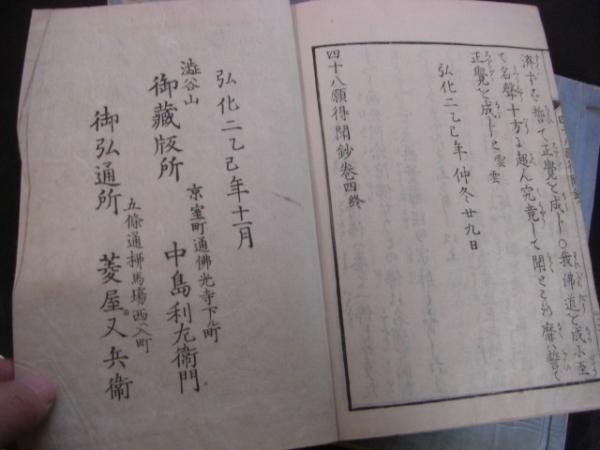 済せずは誓て正覺を成ト〇我佛道を成に至
て名聲十方に超ん究竟して聞ところ靡は誓て
正覺を成ト と云云
弘化二乙巳年 仲冬廿九日
四十八願得聞鈔卷四終
弘化二乙巳年十一月
澁谷山
御藏版所
京室町通佛光寺下ル町
中島利左衛門
御弘通所
五條通柳馬場西入町
菱屋又兵衛